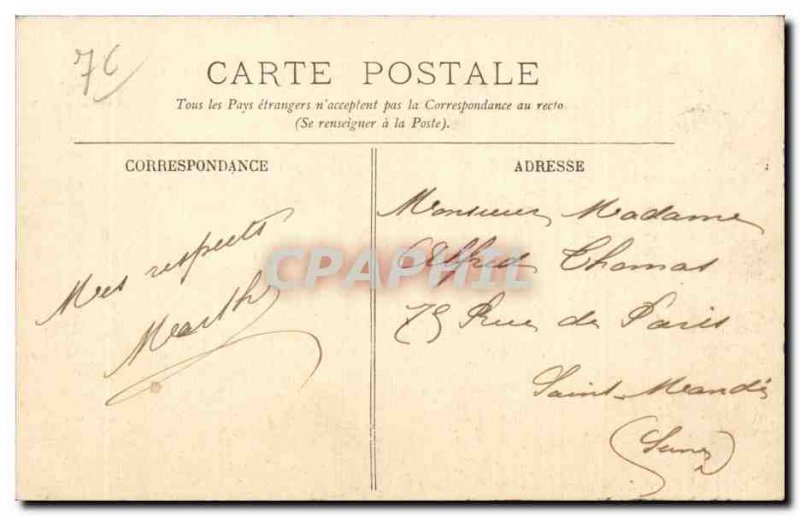 76
CARTE POSTALE
Tous les Pays étrangers n'acceptent pas la Correspondance au recto
(Se renseigner à la Poste).
CORRESPONDANCE
Mes respects
Marthe
ADRESSE
Monsieur Madame
Alfred Thomas
75 Rue de Paris
Saint-Mandé
(Seine)
CPAPHIL